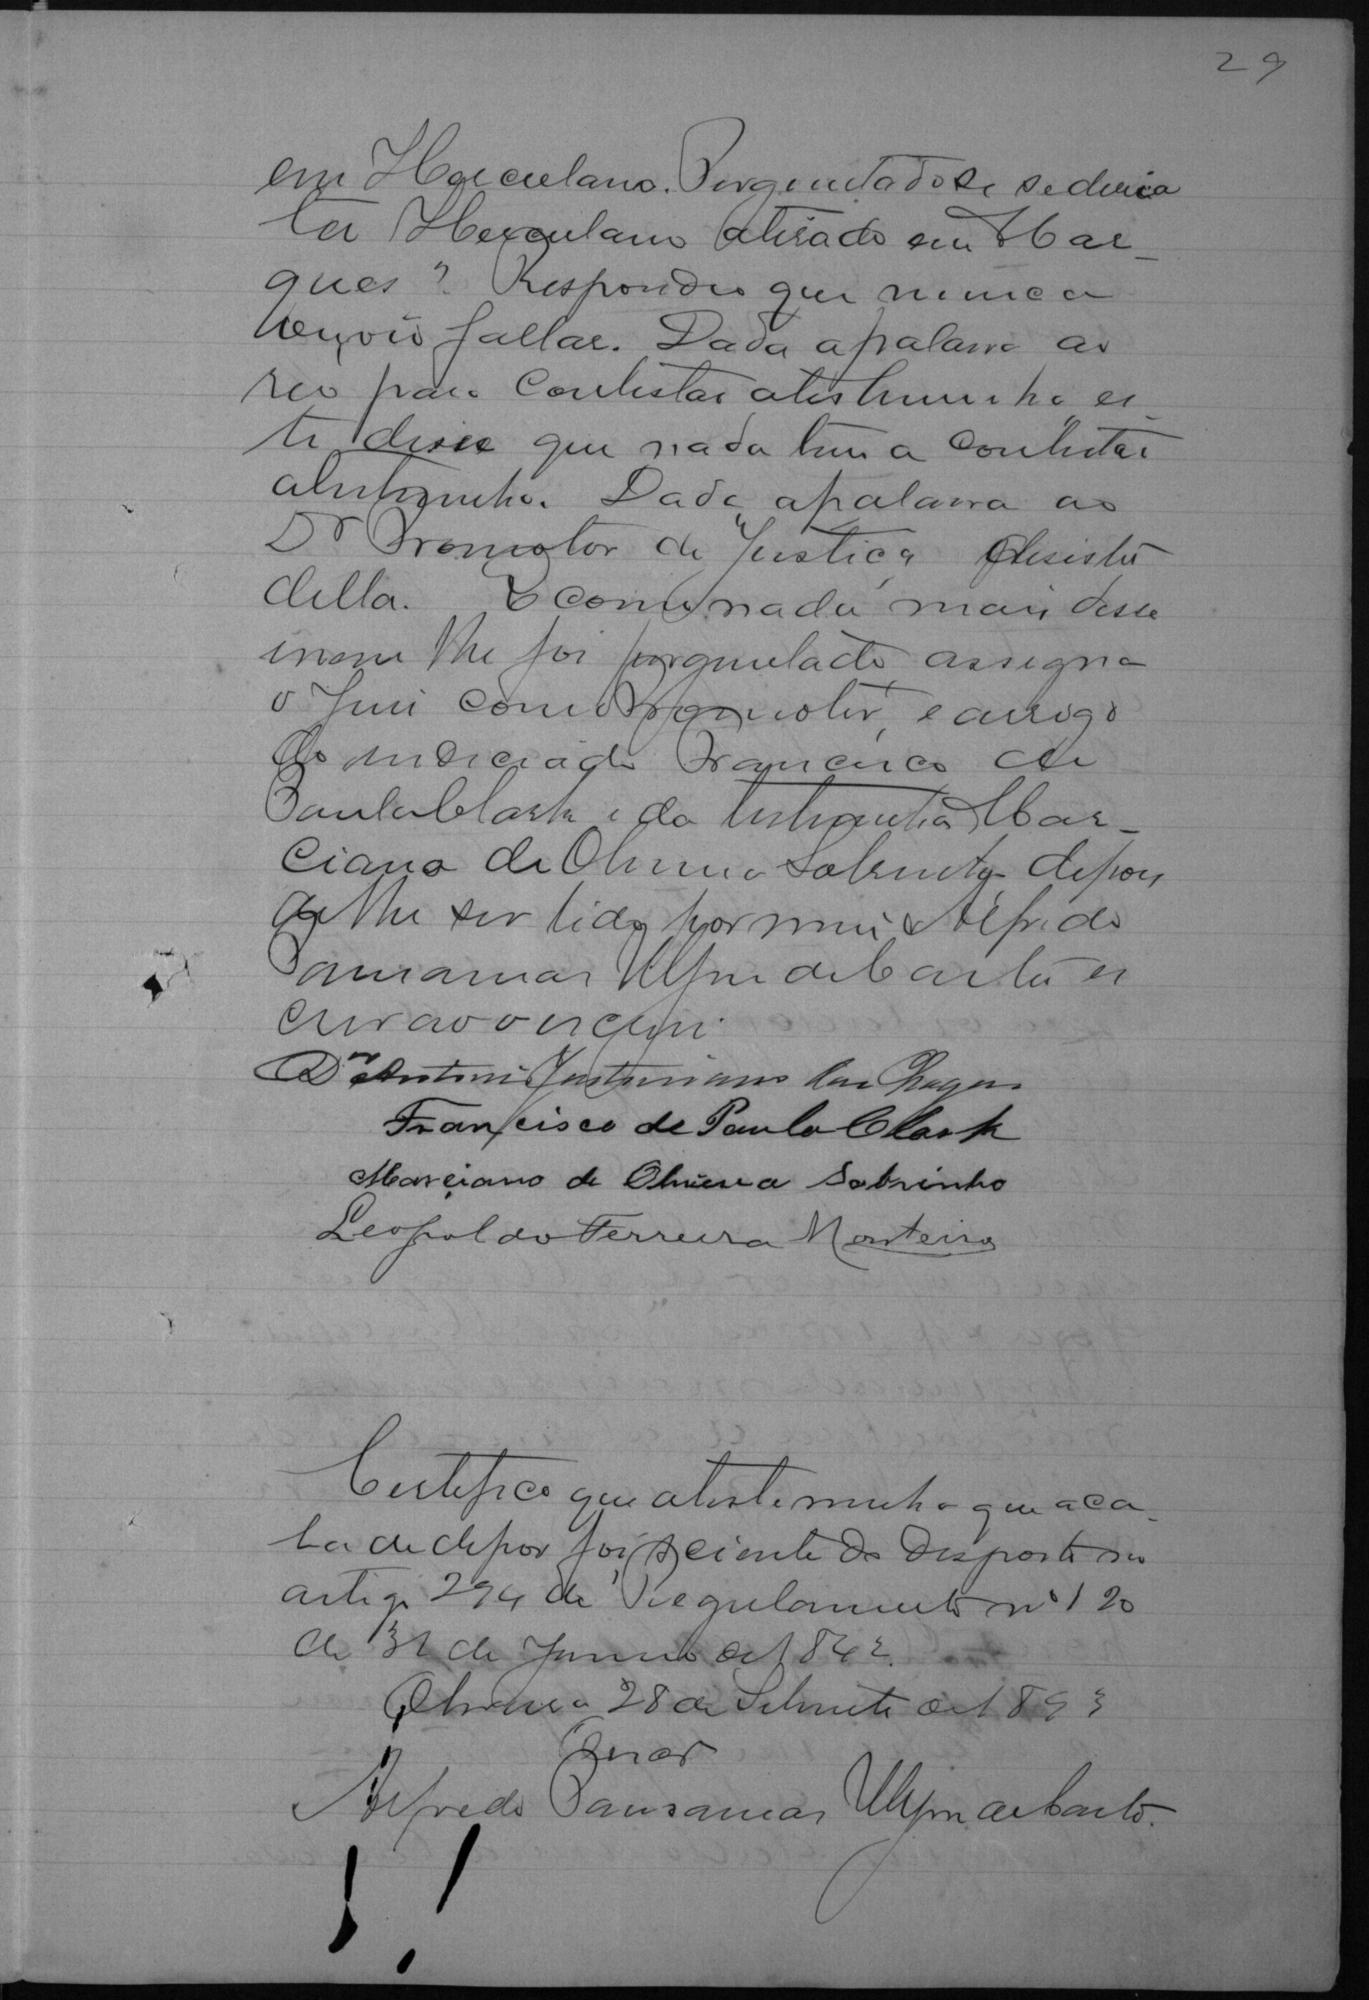 29
em Herculano. Perguntado se se devia
ter Herculano atirado em Mar-
ques? Respondeo que nunca
ouvio fallar. Dada a palavra ao
reo para contestar a testemunha, es-
te disse que nada tem a contestar
a testemunha. Dada a palavra ao
Dr Promotor de Justiça desistio
della. E como nada mais disse
nem lhe foi perguntado assigna
o Juiz com o Promotor, e a rogo
do indiciado Francisco de
Paula Clark e da testemunha Mar-
ciano de Oliveira Sobrinho depois
de lhe ser lido por mim Alfredo
Pausanias de Castro es
crivão o escrevi.
Dr Antonio Justiniano das Chagas
Francisco de Paula Clark
Marciano de Oliveira Sobrinho
Leopoldo Ferreira Monteiro
Certifico que a testemunha que aca-
ba de depor foi sciente do disposto no
artigo 294 do Regulamento nº 120
de 31 de Janeiro de 1842.
Oliveira 28 de Setembro de 1893
Alfredo Pausanias de Castro.